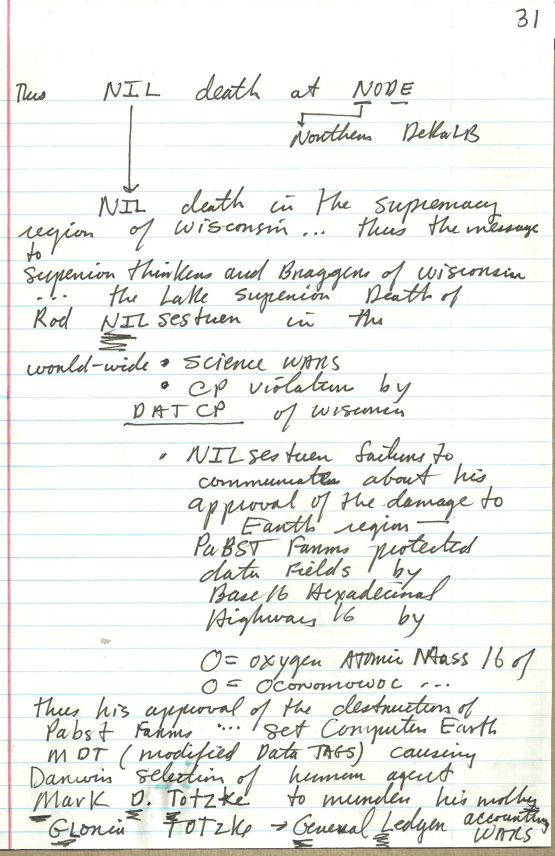 31
Thus NIL death at NODE
Northern DeKaLB
NIL death in the supremacy
region of wisconsin ... thus the message
to
superior thinkers and Braggers of wisconsin
... the Lake superior Death of
Rod NILsestuen in the
world-wide • science WARS
• CP violation by
DATCP of wisconsin
• NILsestuen failure to
communicate about his
approval of the damage to
Earth region —
PaBST Farms protected
data Fields by
Base 16 Hexadecimal
Highways 16 by
O = oxygen Atomic Mass 16 of
O = Oconomowoc ...
thus his approval of the destruction of
Pabst Farms ... set Computer Earth
MDT (modified Data TAGS) causing
Darwin selection of human agent
Mark D. Totzke to murder his mother
Gloria TOTZke → General Ledger accounting
WARS